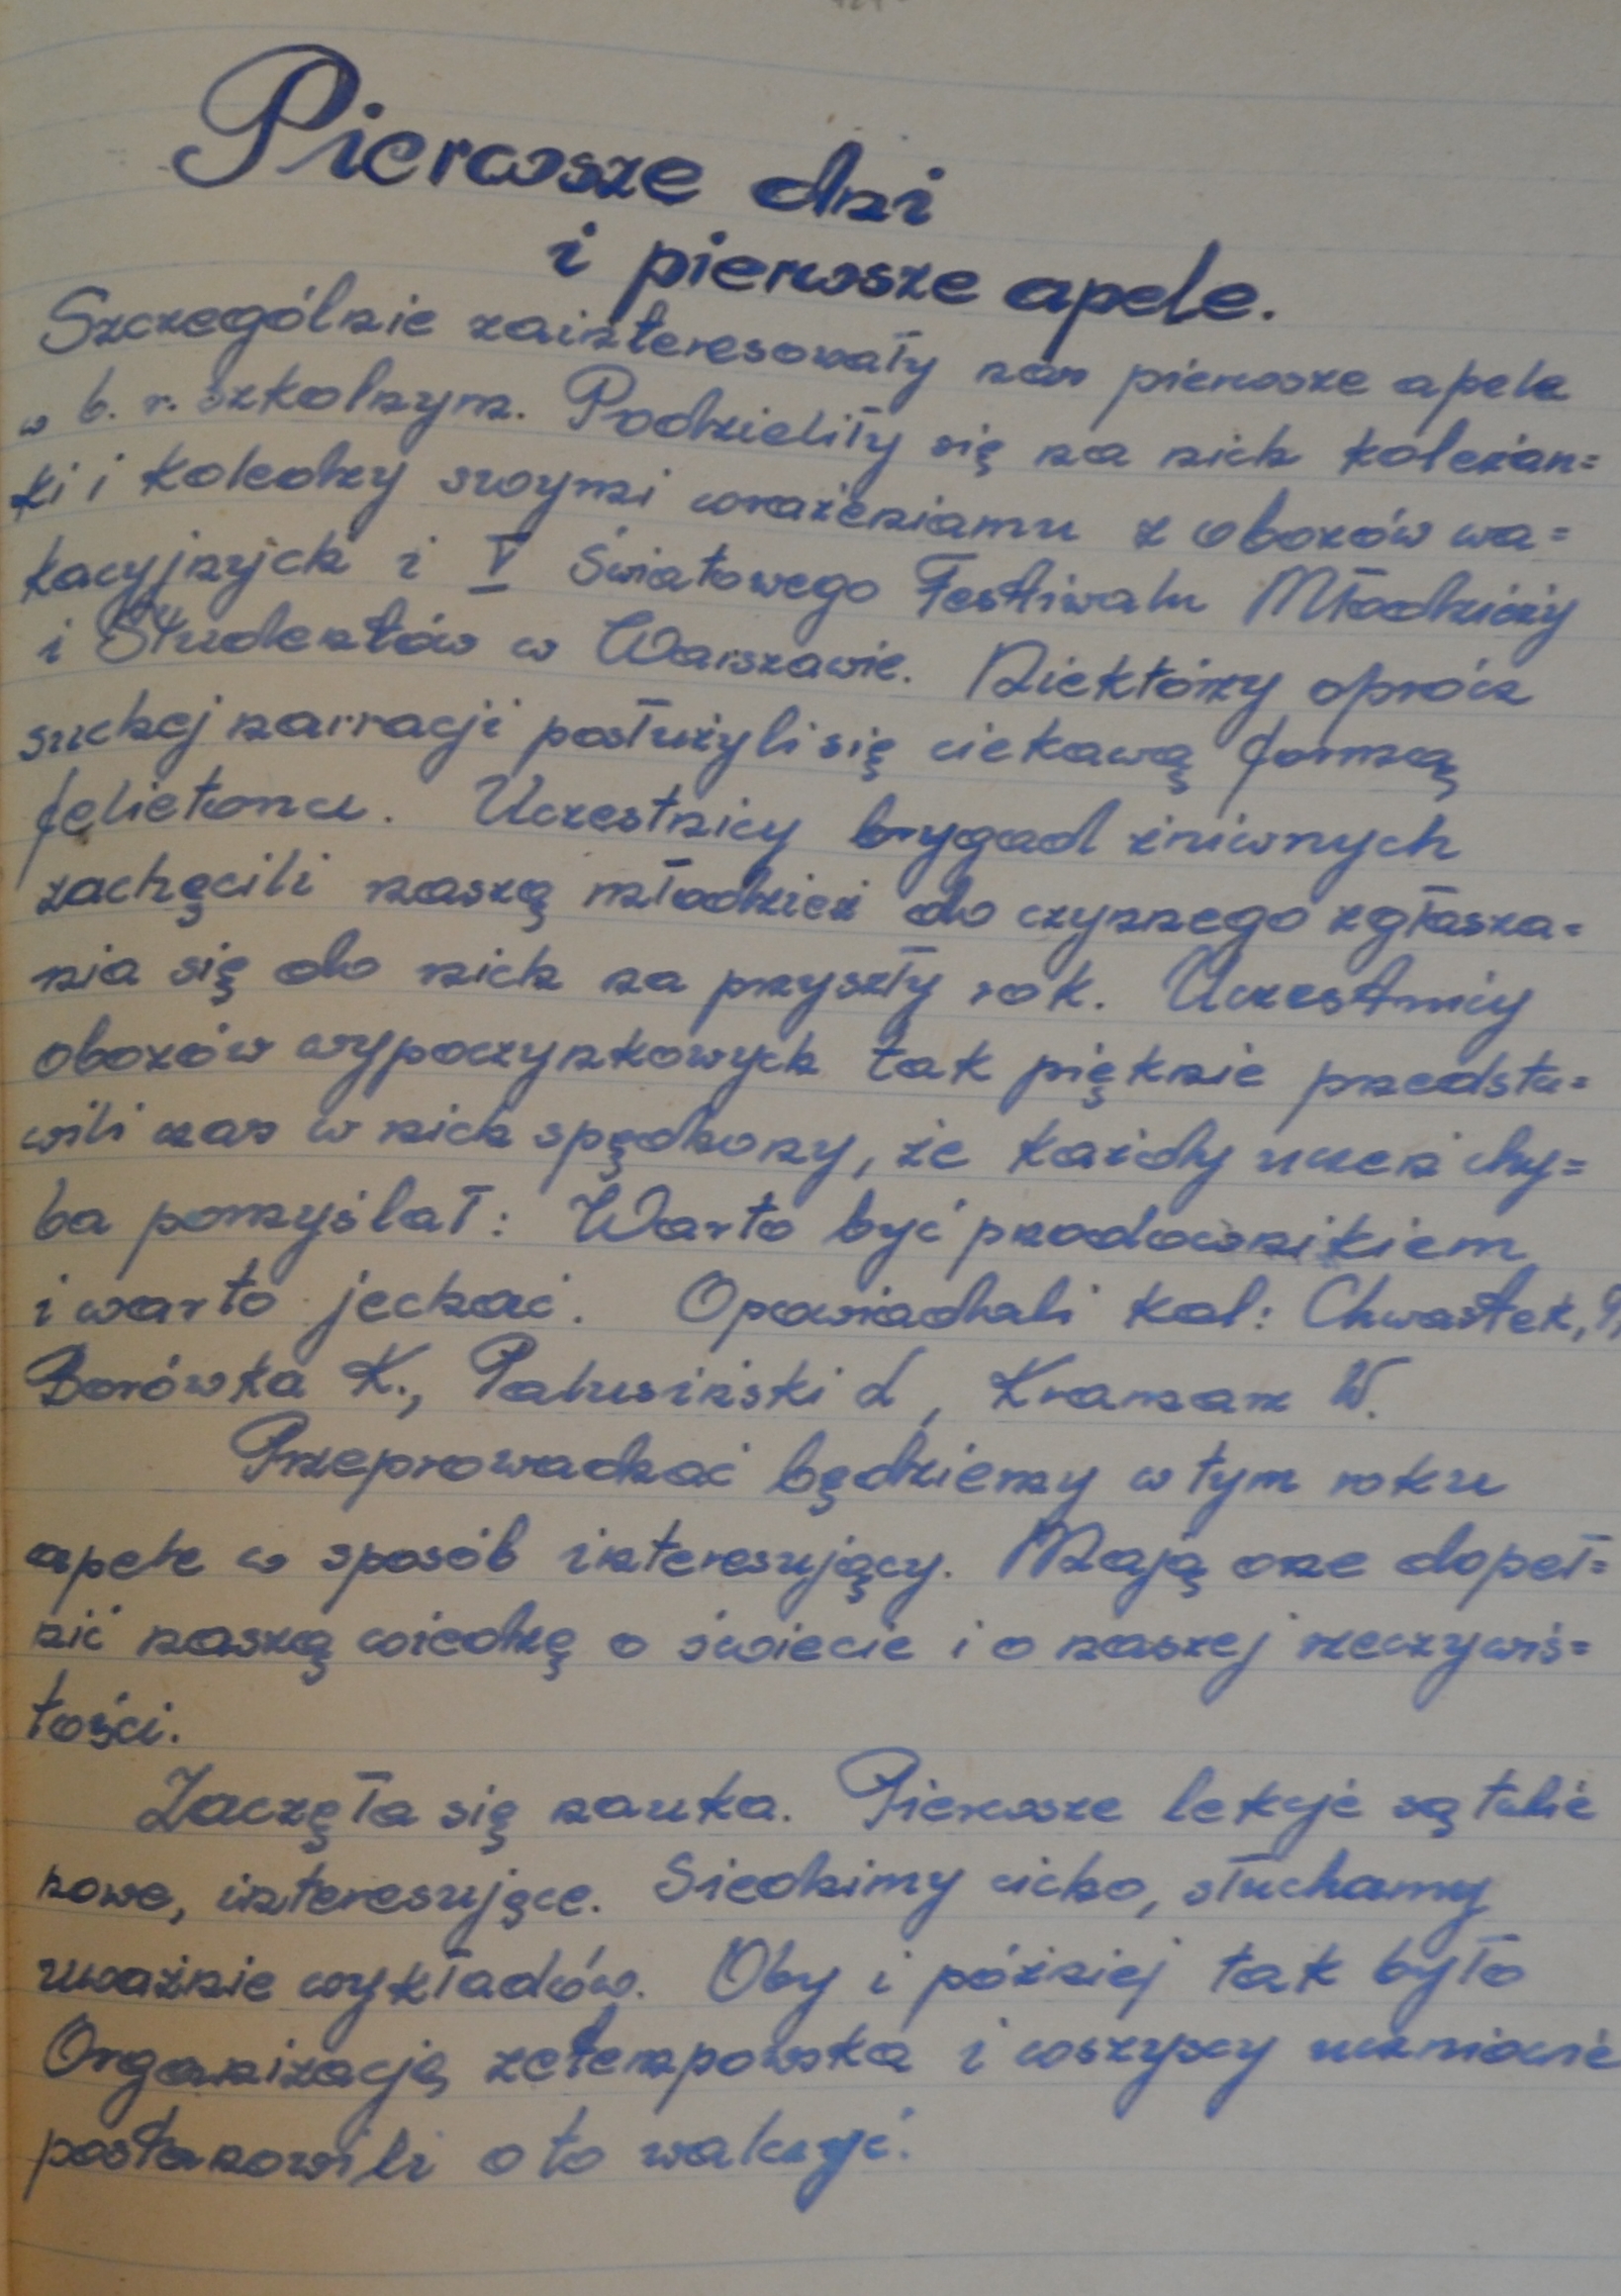 Pierwsze dni
i pierwsze apele.
Szczególnie zainteresowały nas pierwsze apele
w b. r. szkolnym. Podzieliły się na nich koleżan=
ki i koledzy swymi wrażeniamu z obozów wa=
kacyjnych i V Światowego Festiwalu Młodzieży
i Studentów w Warszawie. Niektórzy oprócz
suchej narracji posłużyli się ciekawą formą
felietonu. Uczestnicy brygad żniwnych
zachęcili naszą młodzież do czynnego zgłasza=
nia się do nich na przyszły rok. Uczestnicy
obozów wypoczynkowych tak pięknie przedsta=
wili czas w nich spędzony, że każdy uczeń chy=
ba pomyślał: Warto być przodownikiem
i warto jechać. Opowiadali kol: Chwastek,
Borówka K., Palusiński L, Kramarz W.
Przeprowadzać będziemy w tym roku
apele w sposób interesujący. Mają one dopeł=
nić naszą wiedzę o świecie i o naszej rzeczywis=
tości.
Zaczęła się nauka. Pierwsze lekcje są takie
nowe, interesujące. Siedzimy cicho, słuchamy
uważnie wykładów. Oby i później tak było
Organizacja zetempowska i wszyscy uczniowie
postanowili o to walczyć.